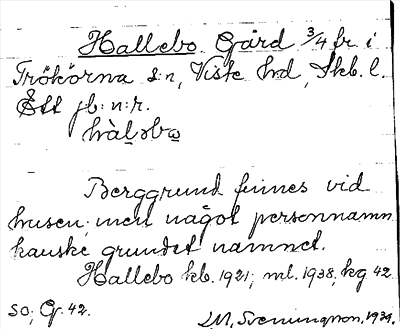 Hallebo Gård 3/4 fr. i
Trökörna s:n, Viste hrd, Skb. l.
Ett jb: n:r.
hàl̥əbɷ
Berggrund finnes vid
husen; men något personnamn
kanske grundet namnet.
Hallebo kb. 1921; ml. 1938, kg 42
so; Gr. 42.
LM, Svenungson, 1939.